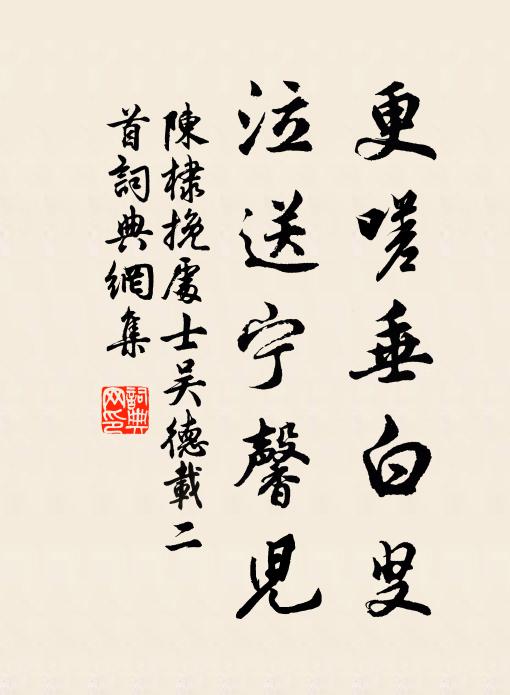 更嗟垂白叟
泣送宁馨兒
陳棣挽處士吳德載二
首詞典網集
詞典
网印